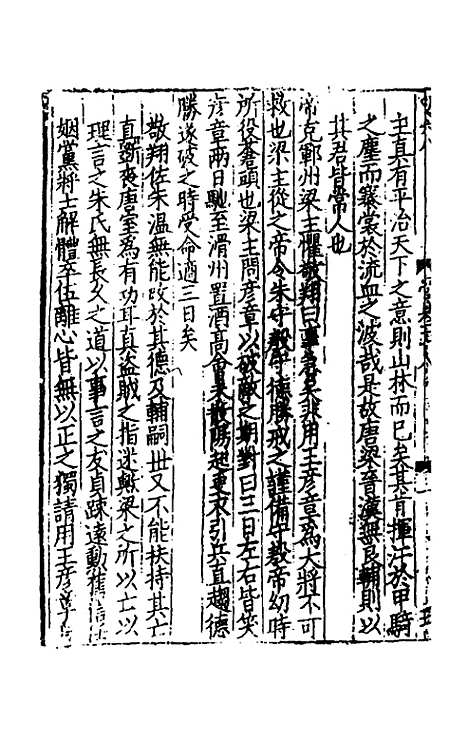 主真有平治天下之意則山林而已矣其肯揮汗於甲騎
之塵而褰裳於流血之波哉是故唐梁晉漢無良輔則以
其君皆常人也
帝克鄆州梁主懼敬翔曰事急矣非用王彥章為大將不可
救也梁主從之帝令朱守殷守德勝戒之謹備守殷帝幼時
所役蒼頭也梁主問彥章以破敵之期對曰三日左右皆笑
彥章兩日馳至滑州置酒高會
起更
引兵直趨德
勝遂破之時受命適三日矣
敬翔佐朱溫無能改於其德及輔嗣世又不能扶持其亡
直斲喪唐室為有功耳真盜賊之指迷
梁之所以亡以
理言之朱氏無長久之道以事言之友貞踈遠勳舊信
姻黨將士解體卒伍離心皆無以正之獨請用王彥章